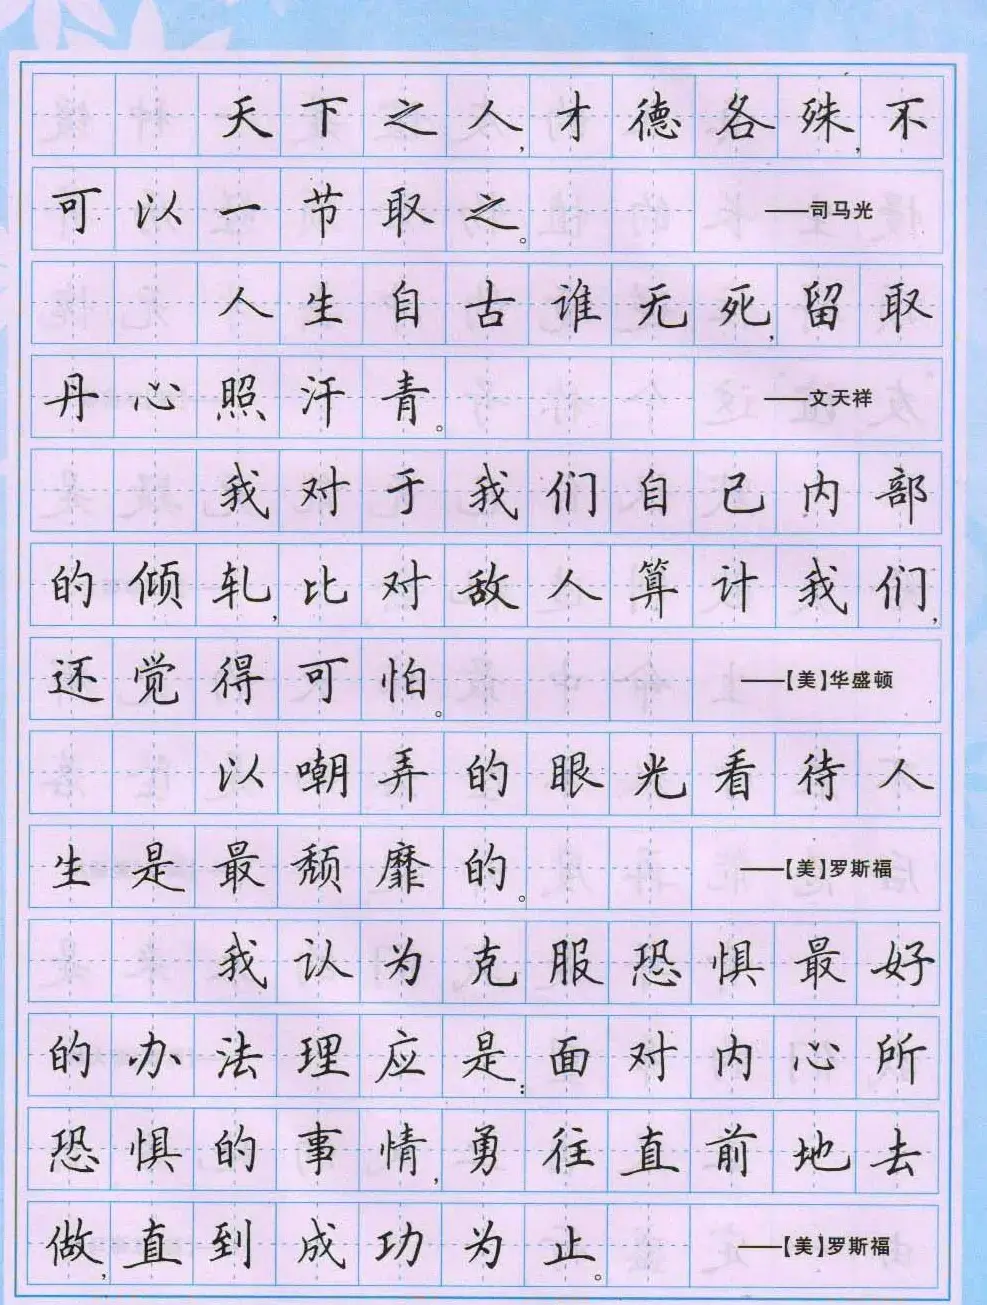 天下之人,才德各殊,不
可以一节取之。 ——司马光
人生自古谁无死,留取
丹心照汗青。 ——文天祥
我对于我们自己内部
的倾轧,比对敌人算计我们,
还觉得可怕。 ——【美】华盛顿
以嘲弄的眼光看待人
生是最颓靡的。 ——【美】罗斯福
我认为克服恐惧最好
的办法理应是:面对内心所
恐惧的事情,勇往直前地去
做,直到成功为止。 ——【美】罗斯福